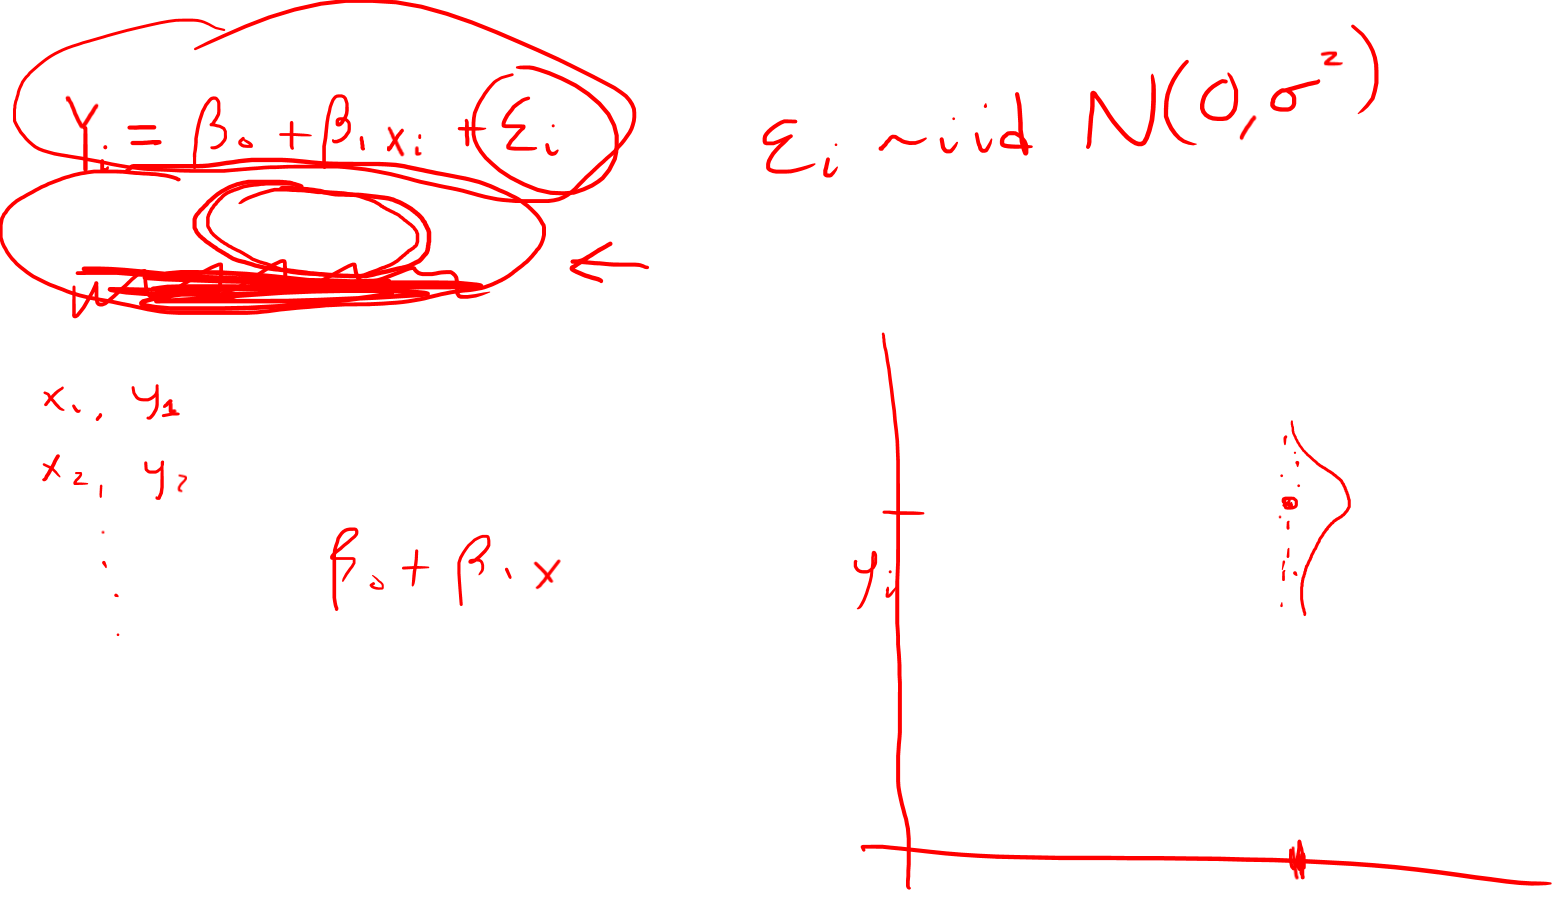 Y_i = β_0 + β_1 x_i + ε_i
ε_i ~ iid N(0, σ^2)
x_1, y_1
x_2, y_2
β_0 + β_1 x
y_i